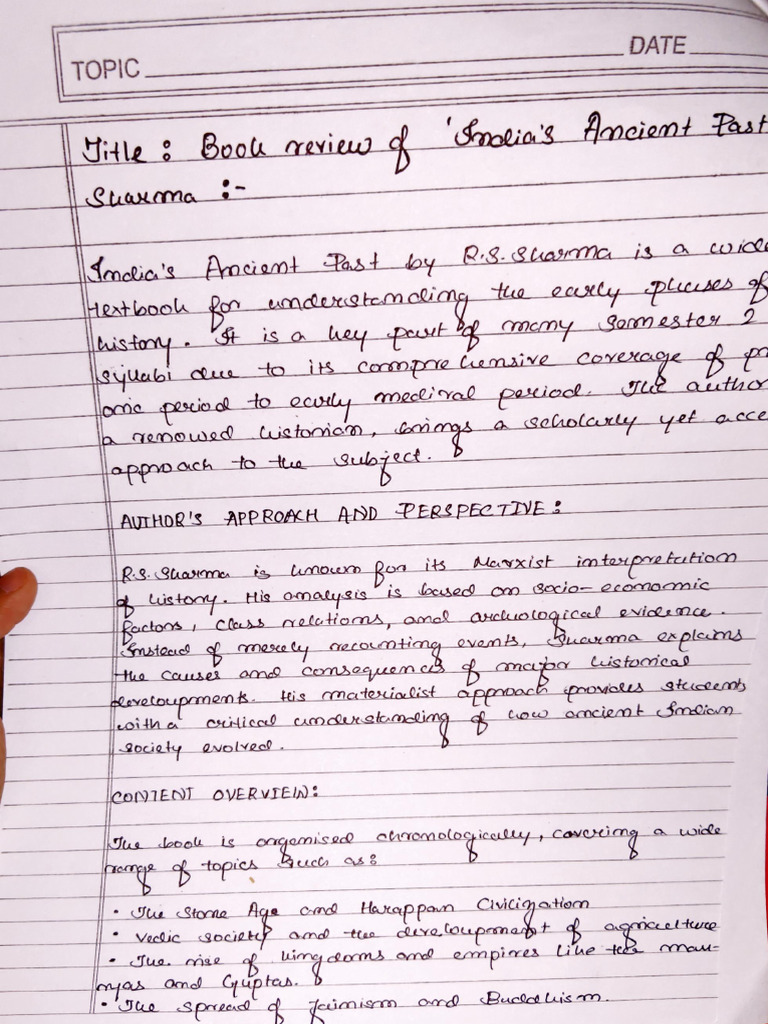 TOPIC
DATE
Title : Book review of 'India's Ancient Past
Sharma :-
India's Ancient Past by R.S. Sharma is a wide
textbook for understanding the early phases of
history. It is a key part of many Semester 2
syllabi due to its comprehensive coverage of
oric period to early medival period. The author
a renowed historian, brings a scholarly yet acce
approach to the subject.
AUTHOR'S APPROACH AND PERSPECTIVE :
R.S. Sharma is known for its Marxist interpretation
of history. His analysis is based on socio-economic
factors, class relations, and archological evidence.
Instead of merely recounting events, Sharma explains
the causes and consequences of major historical
developments. His materialist approach provides students
with a critical understanding of how ancient Indian
society evolved.
CONTENT OVERVIEW :
The book is organised chronologically, covering a wide
range of topics such as :
• The Stone Age and Harappan Civilization
• Vedic society and the development of agriculture
• The rise of kingdoms and empires like the mau-
ryas and Guptas.
• The spread of Jainism and Buddhism.